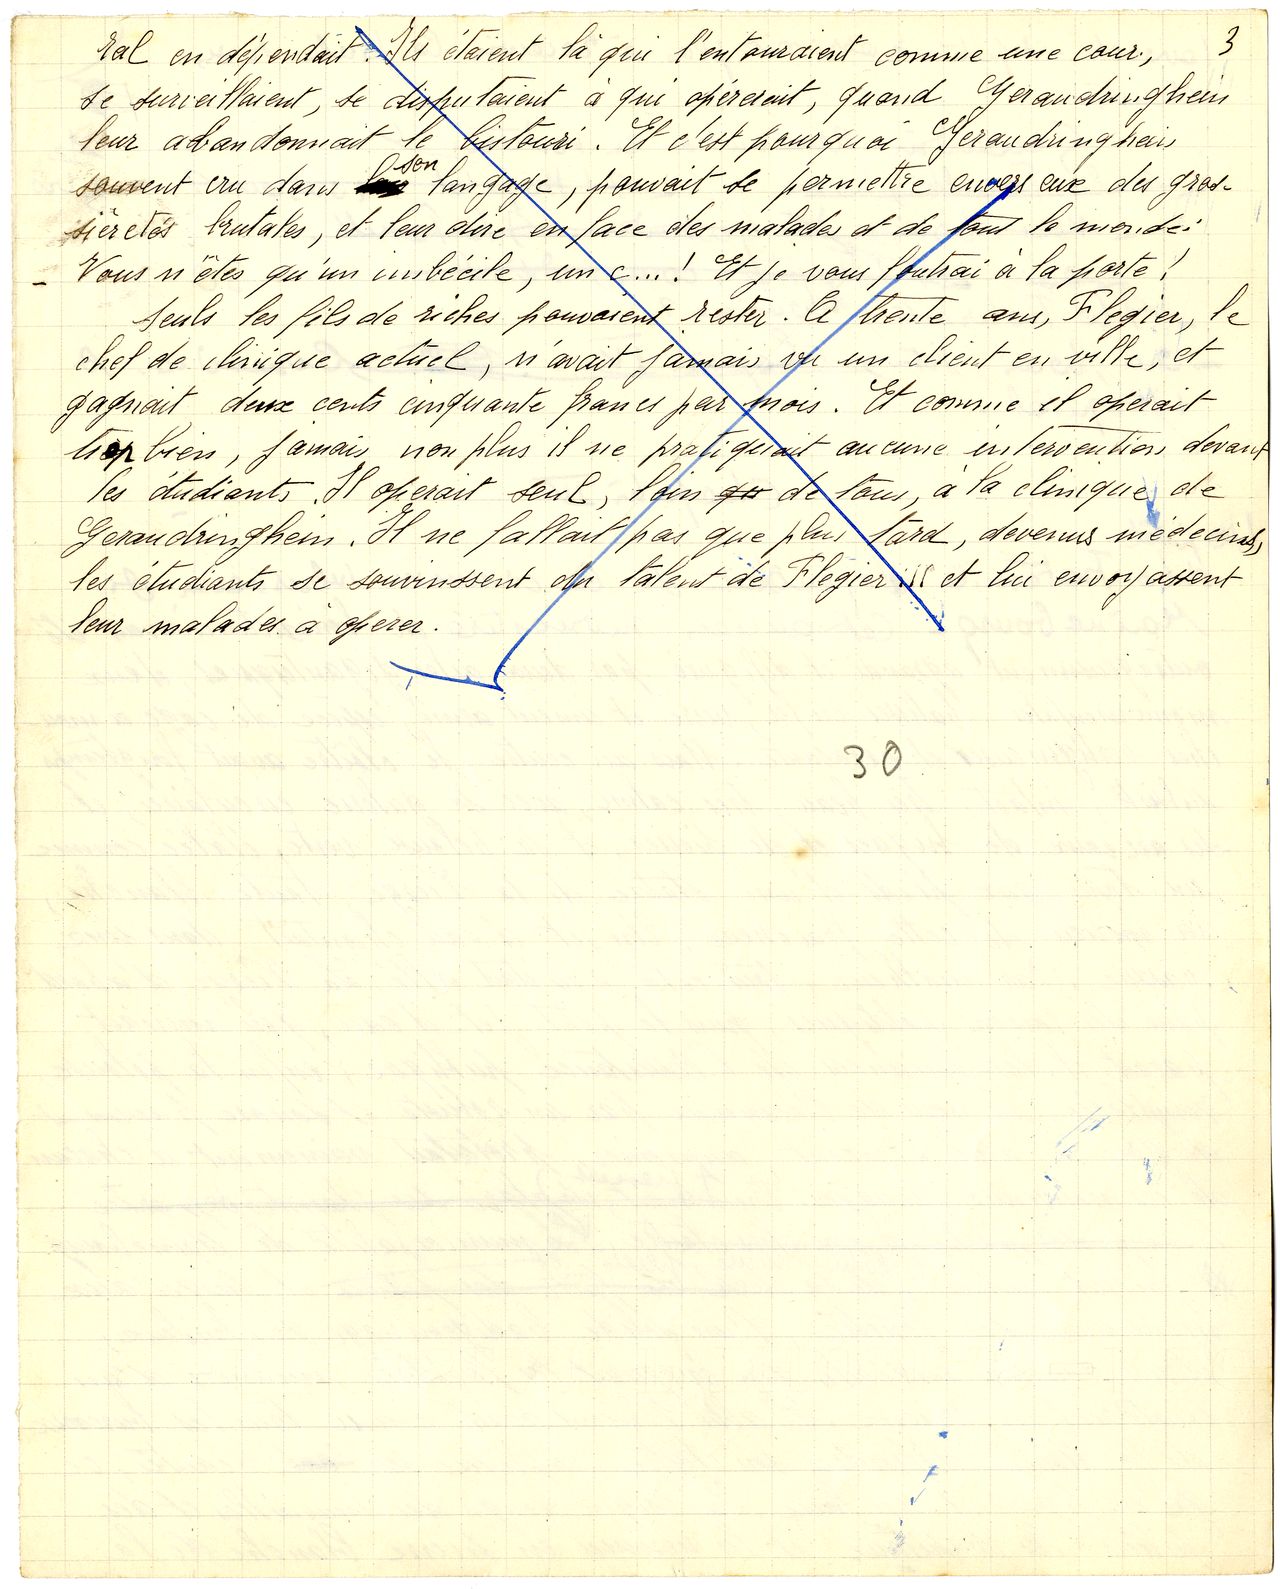 3
ral en dépendait. Ils étaient là qui l'entouraient comme une cour,
se surveillaient, se disputaient à qui opérerait, quand Geraudringhein
leur abandonnait le bistouri. Et c'est pourquoi Geraudringhein
souvent cru dans son langage, pouvait se permettre envers eux des gros-
sièretés brutales, et leur dire en face des malades et de tout le monde:
- Vous n'êtes qu'un imbécile, un c...! Et je vous foutrai à la porte!
Seuls les fils de riches pouvaient rester. A trente ans, Flegier, le
chef de clinique actuel, n'avait jamais vu un client en ville, et
gagnait deux cents cinquante francs par mois. Et comme il operait
trop bien, jamais non plus il ne pratiquait aucune intervention devant
les étudiants. Il operait seul, loin de tous, à la clinique de
Geraudringhein. Il ne fallait pas que plus tard, devenus médecins,
les étudiants se souvinssent du talent de Flegier et lui envoyassent
leur malades à operer.
30